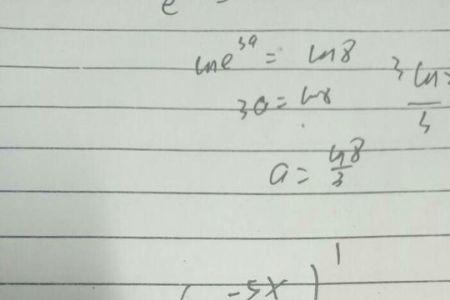 e
ln e^{3a} = ln 8
3a = ln 8
a = \frac{ln 8}{3}
-5x ) 1